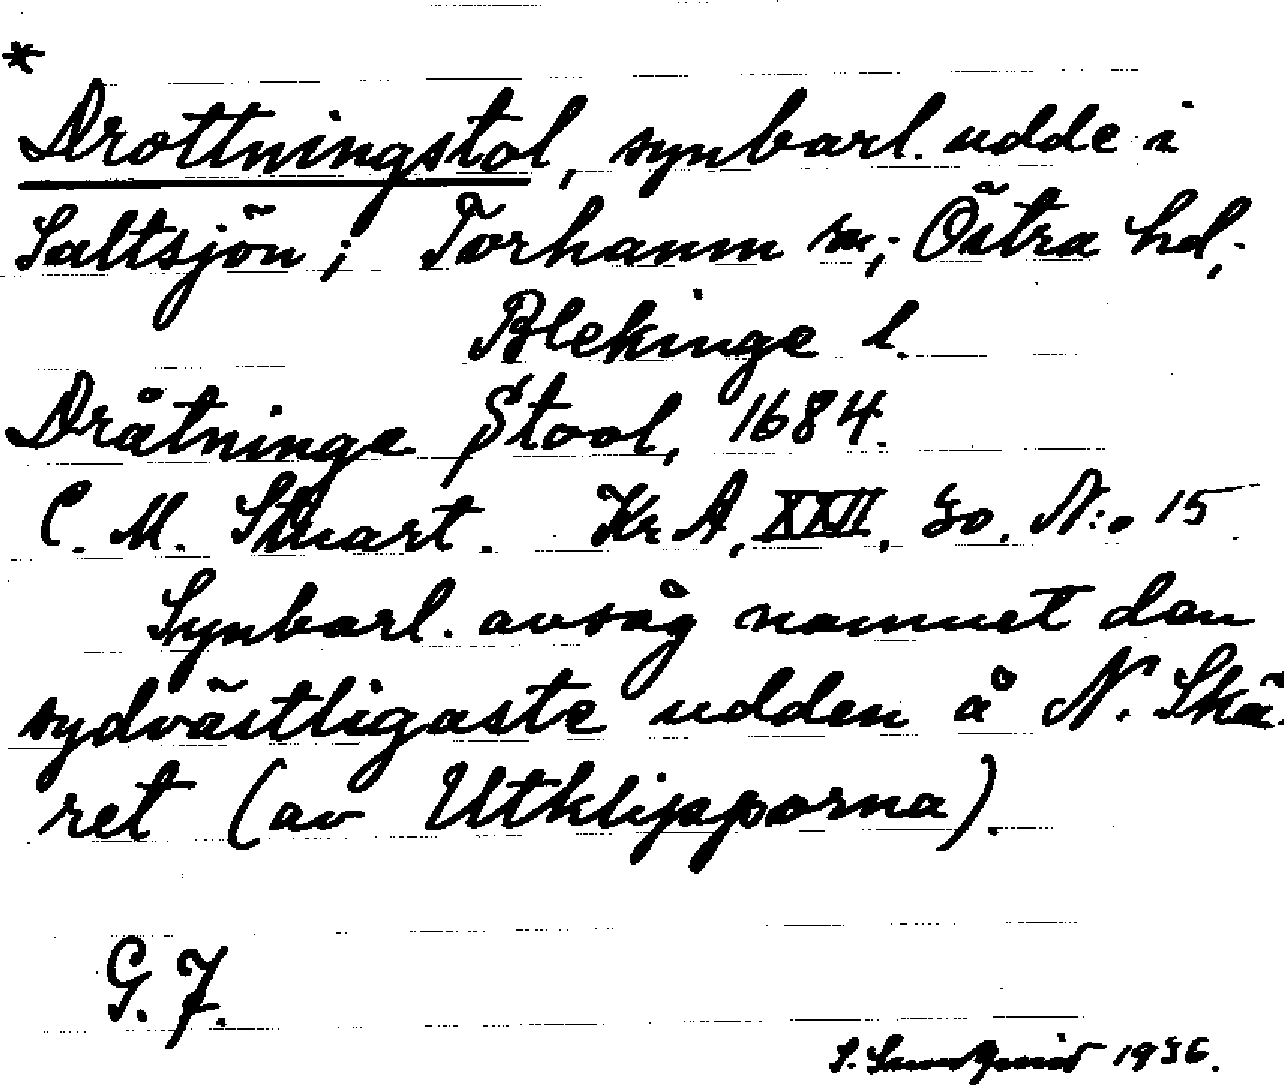 *
Drottningstol, synbarl. udde i
Saltsjön; Torhamn sn; Östra hd,
Blekinge l.
Dråtninge Stool, 1684.
C. M. Stuart. Kr. A, XXII, So, N:o 15
Synbarl. avsåg namnet den
sydvästligaste udden å N. Skä-
ret (av Utklipporna).
G. F.
S. 1936.